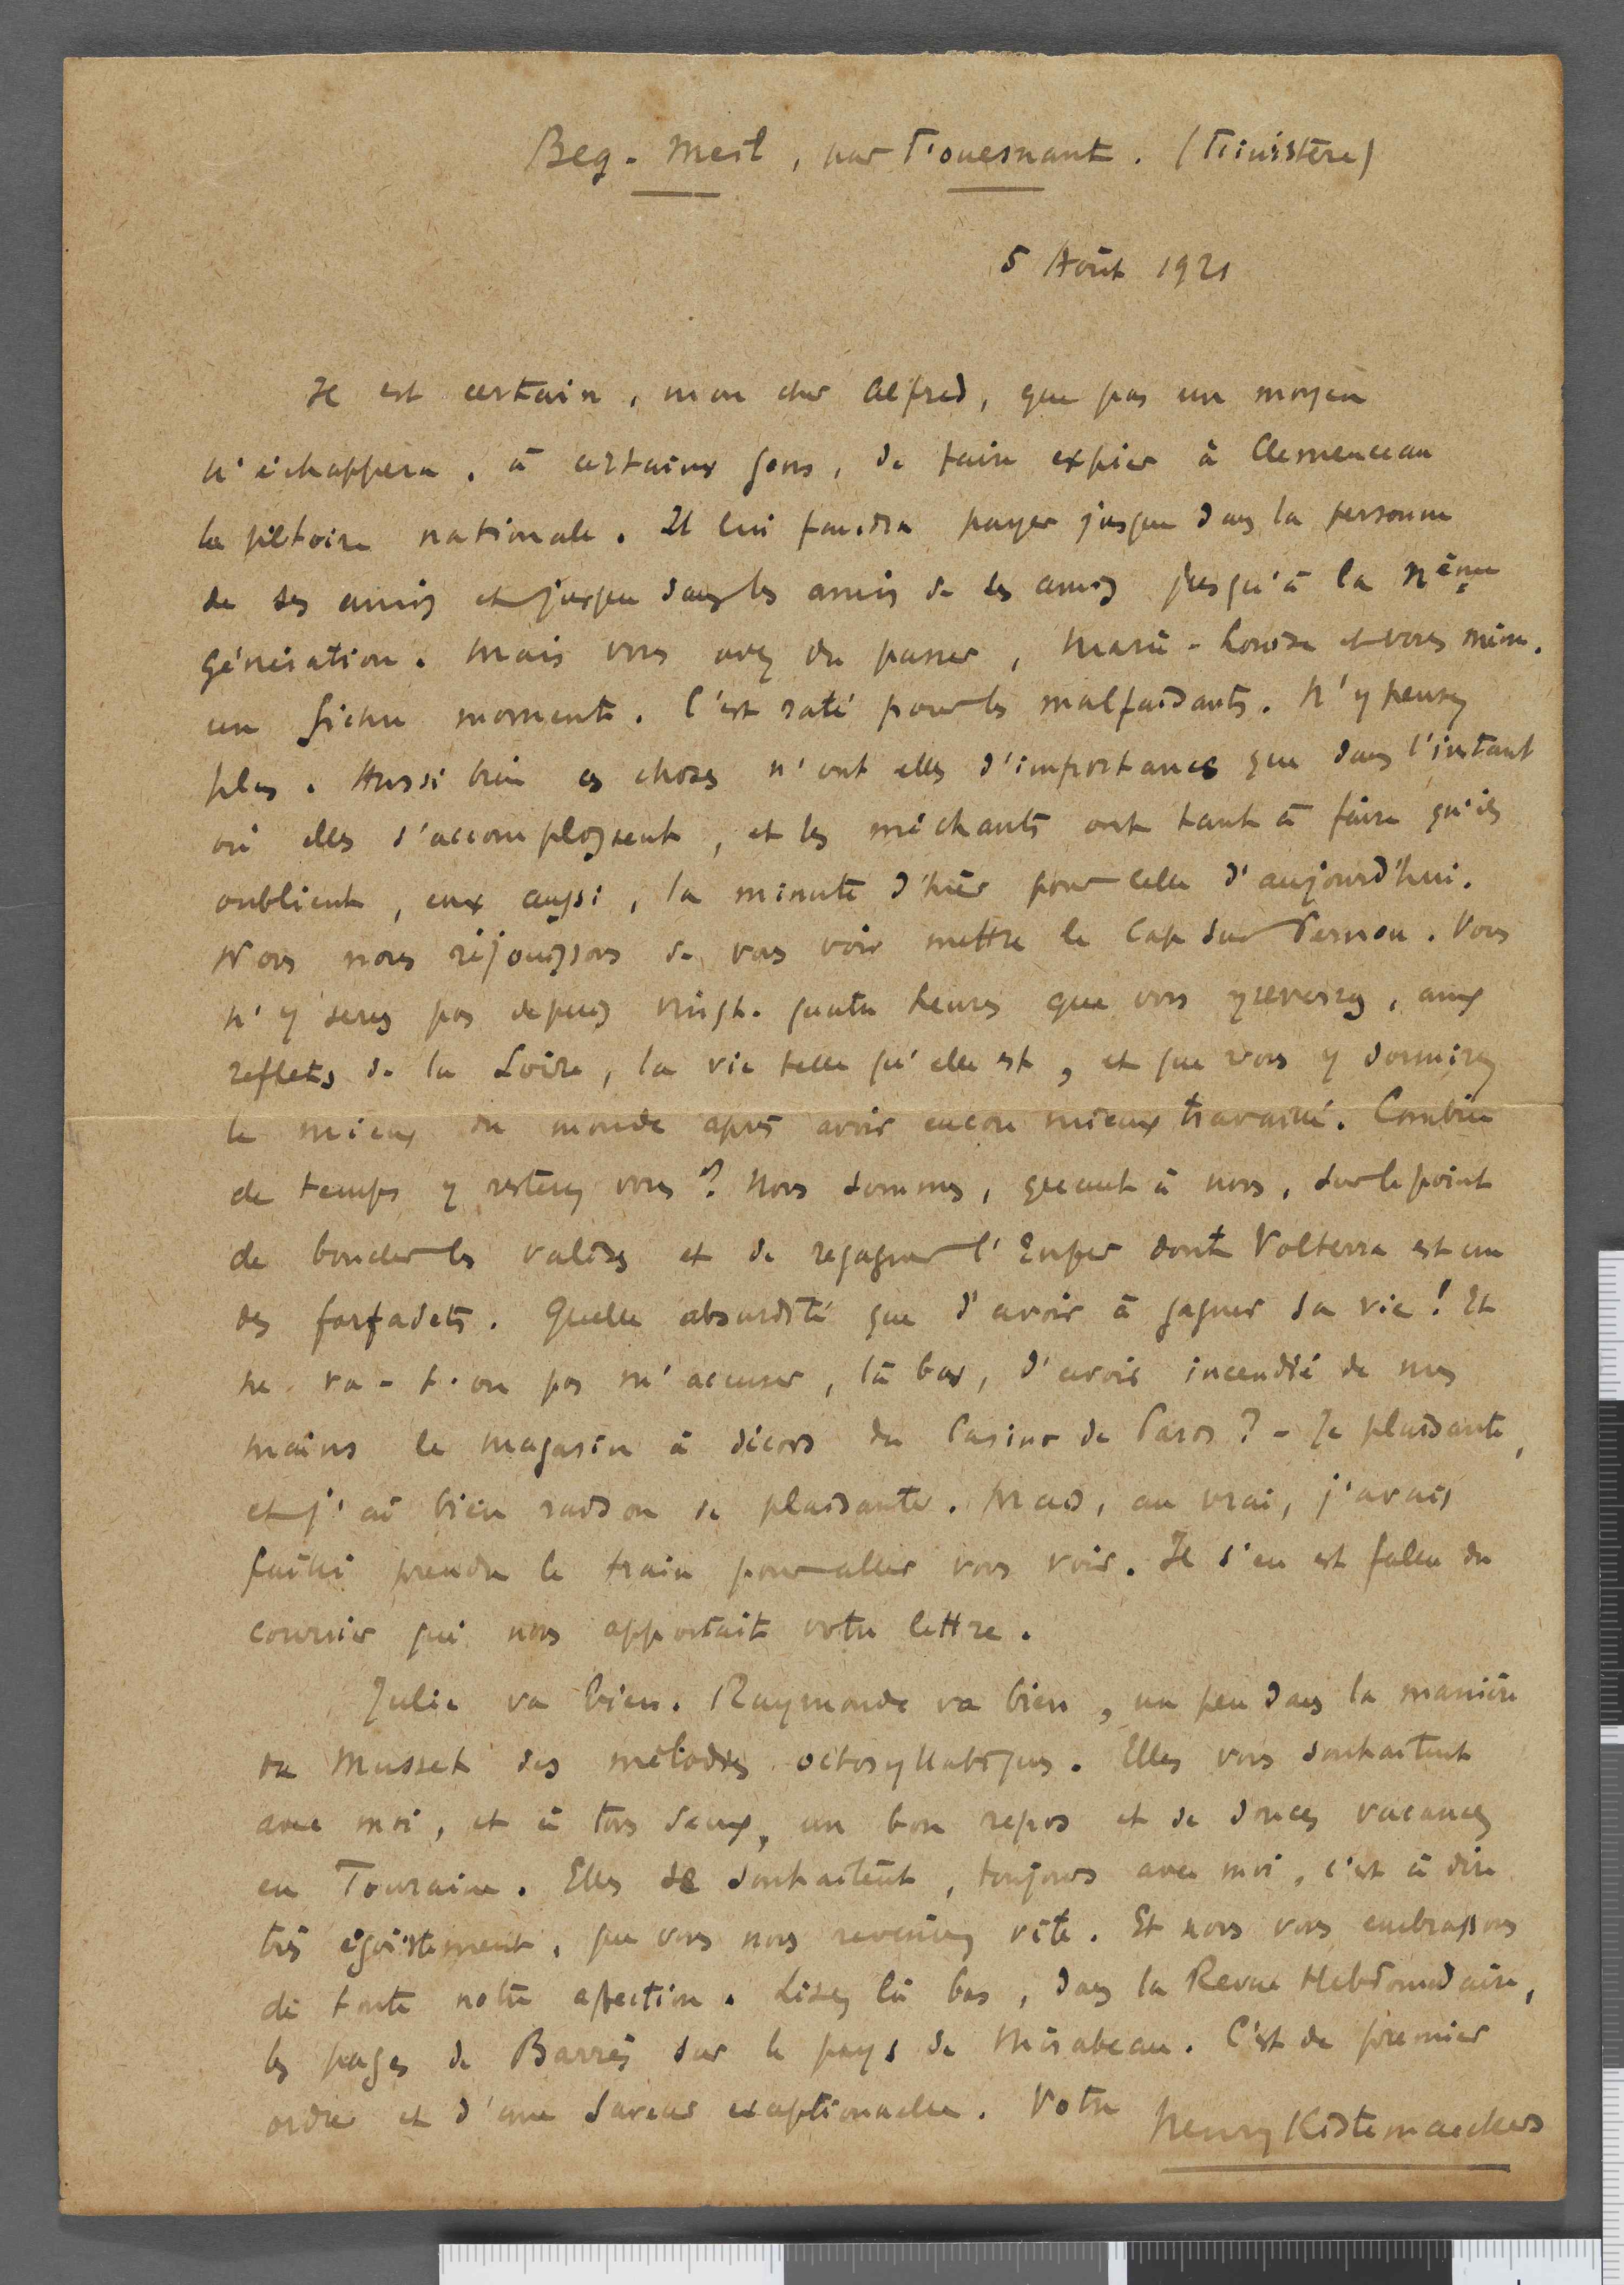 Beg-Meil, par Fouesnant. (Finistère)
5 Août 1921
Il est certain, mon cher Alfred, que pas un moyen
n'échappera, à certains gens, de faire expier à Clemenceau
la victoire nationale. Il lui faudra payer jusque dans la personne
de ses amis et jusque dans les amis de ses amis jusqu'à la nème
génération. Mais vous avez dû passer, Marie-Louise et vous même,
un fichu moment. C'est raté pour les malfaisants. N'y pensez
plus. Aussi bien ces choses n'ont elles d'importance que dans l'instant
où elles s'accomplissent, et les méchants ont tant à faire qu'ils
oublient, eux aussi, la minute d'hier pour celle d'aujourd'hui.
Nous nous réjouissons de vous voir mettre le cap sur Vernou. Vous
n'y serez pas depuis vingt-quatre heures que vous y reverrez, aux
reflets de la Loire, la vie telle qu'elle est, et que vous y dormirez
le mieux du monde après avoir encore mieux travaillé. Combien
de temps y resterez vous? Nous sommes, quant à nous, sur le point
de boucler les valises et de regagner l'Enfer dont Volterra est un
des farfadets. Quelle absurdité que d'avoir à gagner sa vie! Et
ne va-t-on pas m'accuser, là bas, d'avoir incendié de mes
mains le magasin à décors du Casino de Paris? - Je plaisante,
et j'ai bien raison de plaisanter. Mais, au vrai, j'avais
failli prendre le train pour aller vous voir. Il s'en est fallu du
courrier qui nous apportait votre lettre.
Julie va bien. Raymonde va bien, un peu dans la manière
du Musset des mélodies octosyllabiques. Elles vous souhaitent
avec moi, et à tous deux, un bon repos et de douces vacances
en Touraine. Elles se souhaitent, toujours avec moi, c'est à dire
très égoïstement, que vous nous reveniez vite. Et nous vous embrassons
de toute notre affection. Lisez là bas, dans la Revue Hebdomadaire,
les pages de Barrès sur le pays de Mirabeau. C'est de premier
ordre et d'une saveur exceptionnelle. Votre
Henry Kistemaeckers